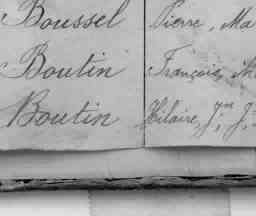 Boussel Pierre, Ma
Boutin François,
Boutin Hilaire, Jn J.